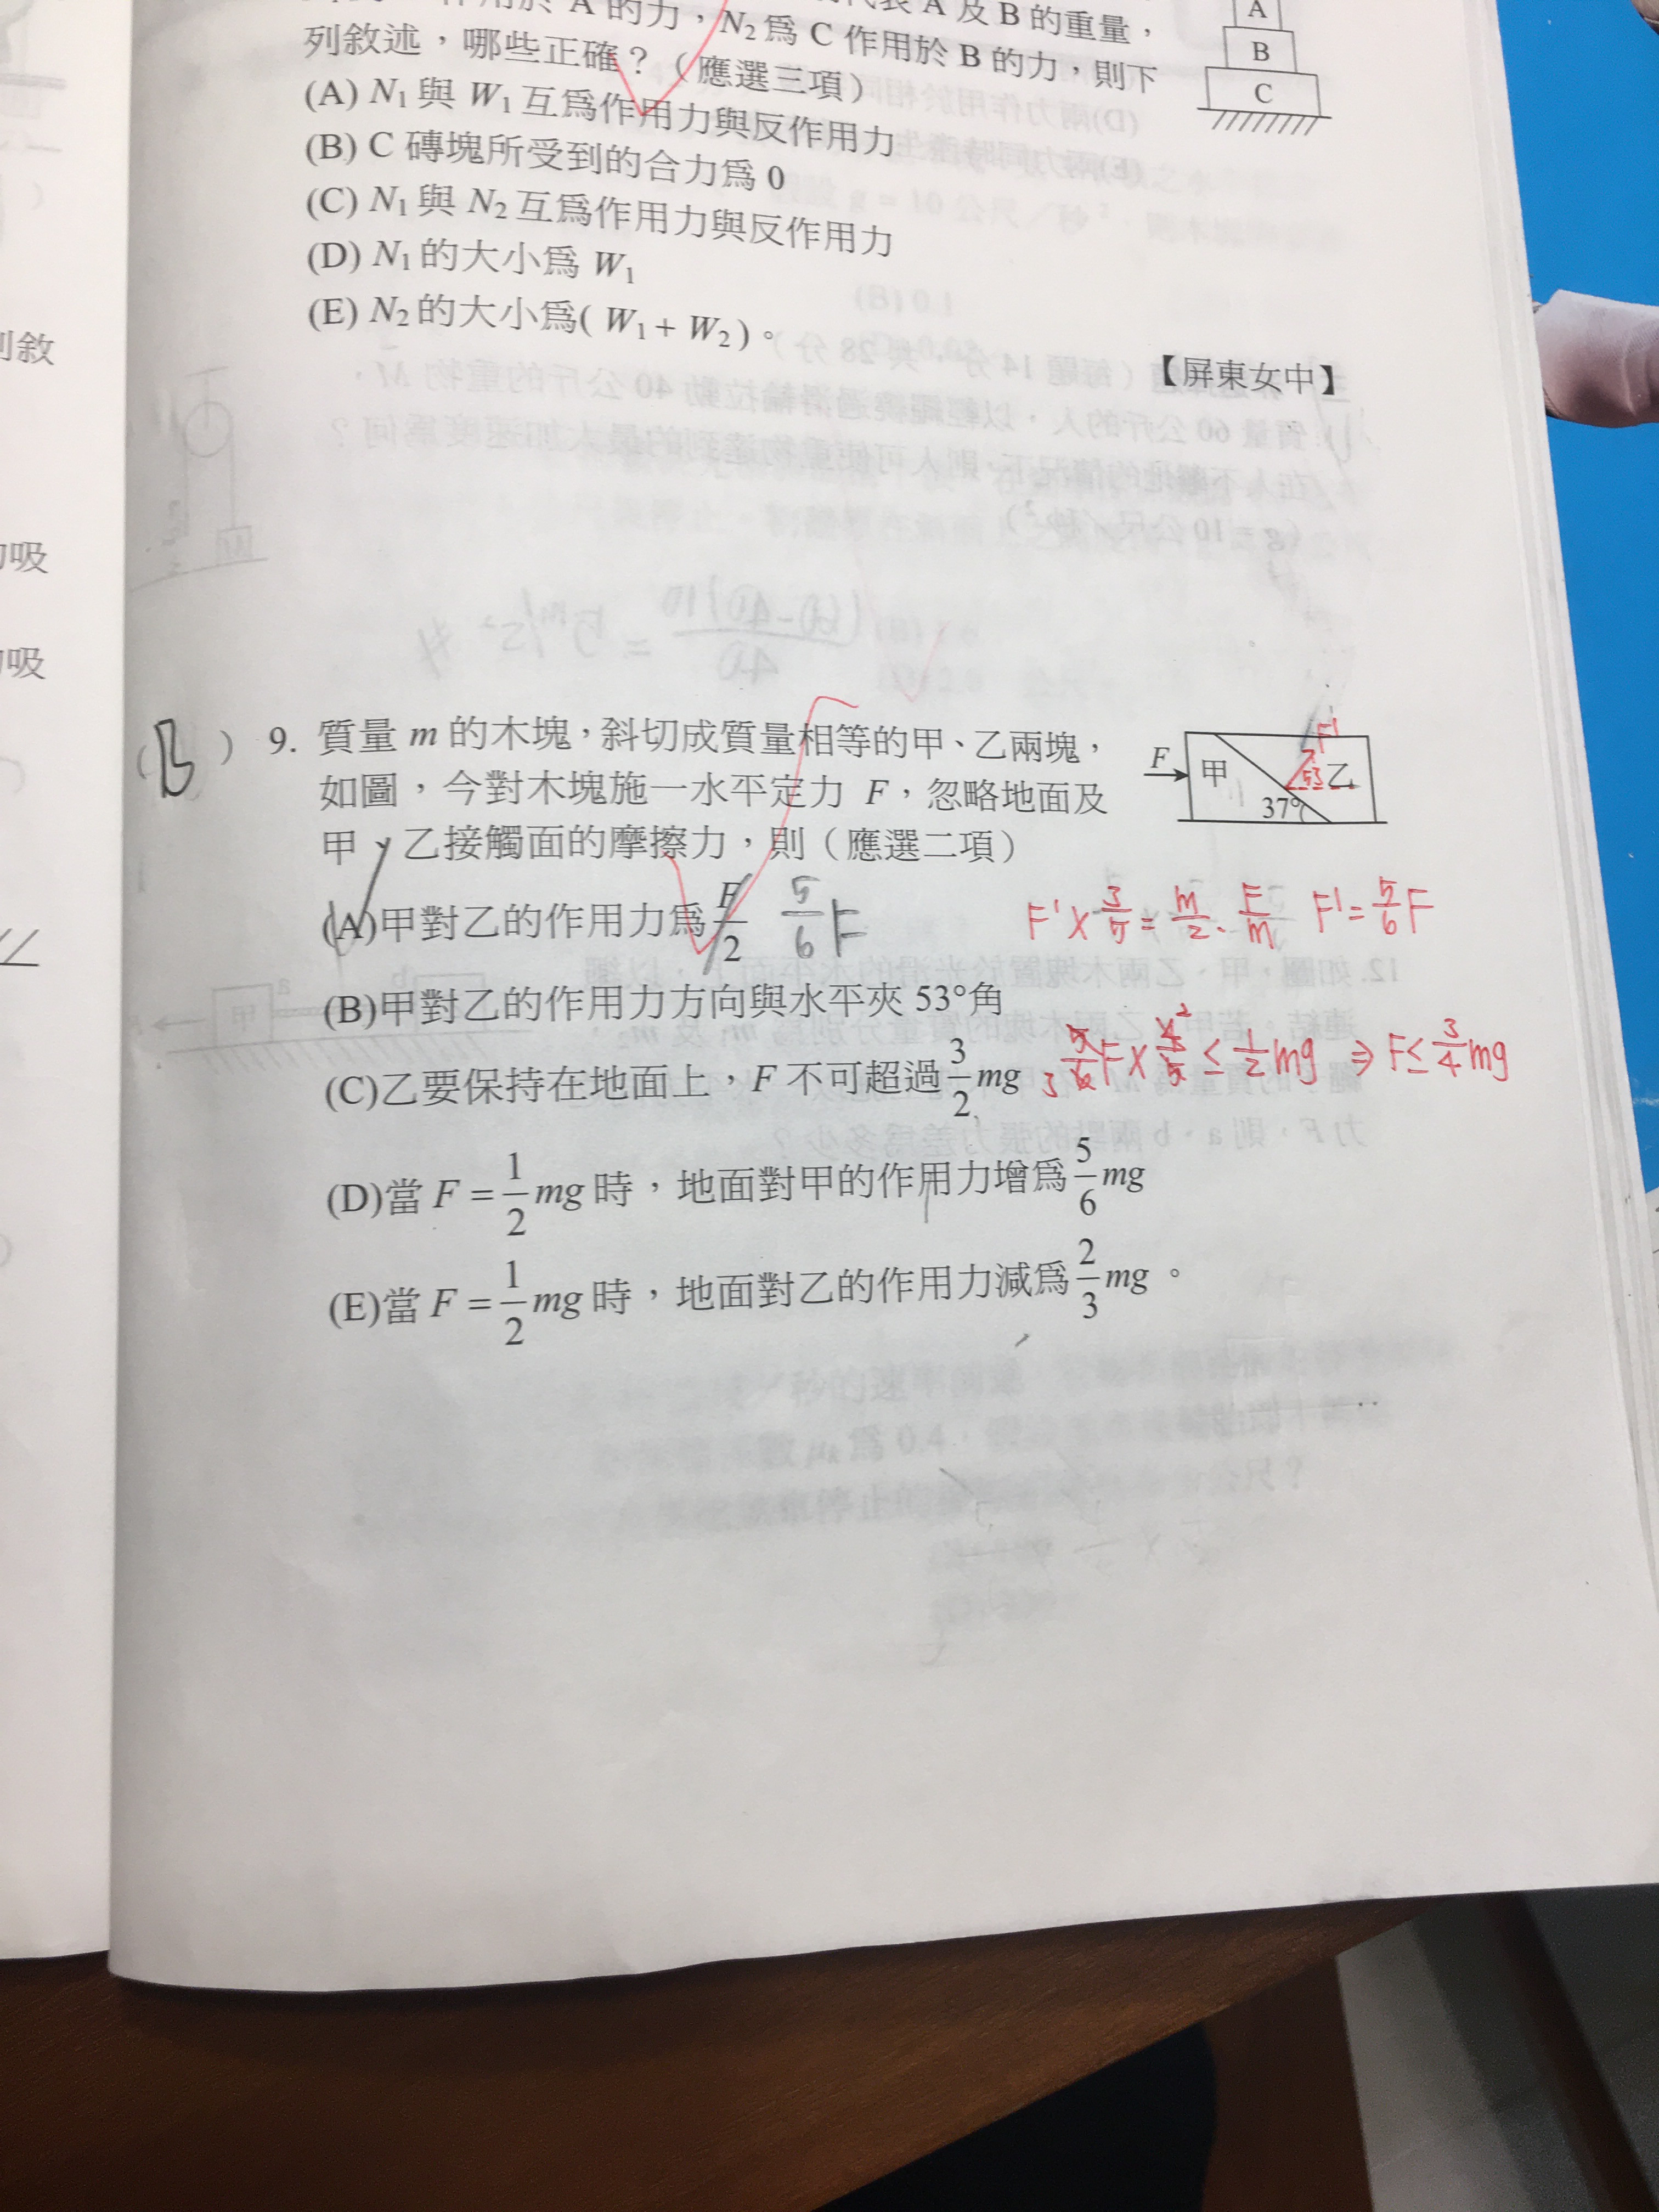 A 及 B 的重量，
作用於 A 的力，N₂ 為 C 作用於 B 的力，則下
列敘述，哪些正確？（應選三項）
(A) N₁ 與 W₁ 互為作用力與反作用力
(B) C 磚塊所受到的合力為 0
(C) N₁ 與 N₂ 互為作用力與反作用力
(D) N₁ 的大小為 W₁
(E) N₂ 的大小為( W₁ + W₂ )。
【屏東女中】
A
B
C
列敘
吸
吸
( B ) 9. 質量 m 的木塊，斜切成質量相等的甲、乙兩塊，
如圖，今對木塊施一水平定力 F，忽略地面及
甲、乙接觸面的摩擦力，則（應選二項）
F 甲 乙 37° F' 53
(A)甲對乙的作用力為 F/2 5/6 F
F' × 3/5 = m/2 · F/m F' = 5/6 F
(B)甲對乙的作用力方向與水平夾 53°角
(C)乙要保持在地面上，F 不可超過 3/2 mg
5/6 F × 4/5 ≤ 1/2 mg ⇒ F ≤ 3/4 mg
(D)當 F = 1/2 mg 時，地面對甲的作用力增為 5/6 mg
(E)當 F = 1/2 mg 時，地面對乙的作用力減為 2/3 mg。